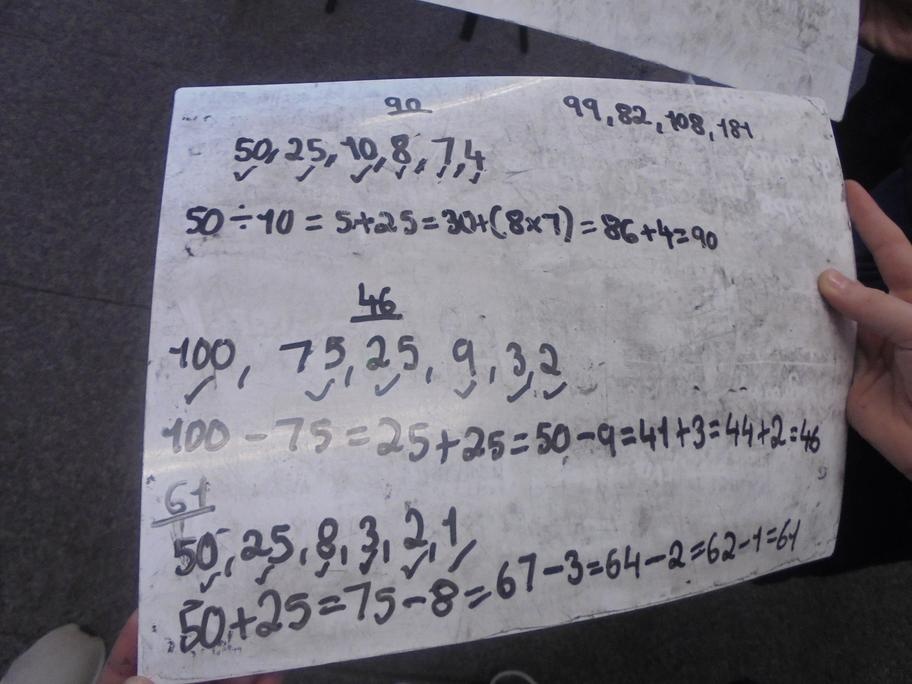 90
99, 82, 108, 181
50, 25, 10, 8, 7, 4
50 ÷ 10 = 5 + 25 = 30 + (8 x 7) = 86 + 4 = 90
46
100, 75, 25, 9, 3, 2
100 - 75 = 25 + 25 = 50 - 9 = 41 + 3 = 44 + 2 = 46
61
50, 25, 8, 3, 2, 1
50 + 25 = 75 - 8 = 67 - 3 = 64 - 2 = 62 - 1 = 61